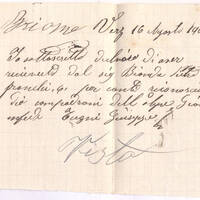 Brione Verz 16 Agosto 19
Io sottoscritto dichiaro di aver
ricevuto dal sig Bionda
franchi 4. per conto
dei compadroni dell'alpe
in fede Togni Giuseppe
Visto